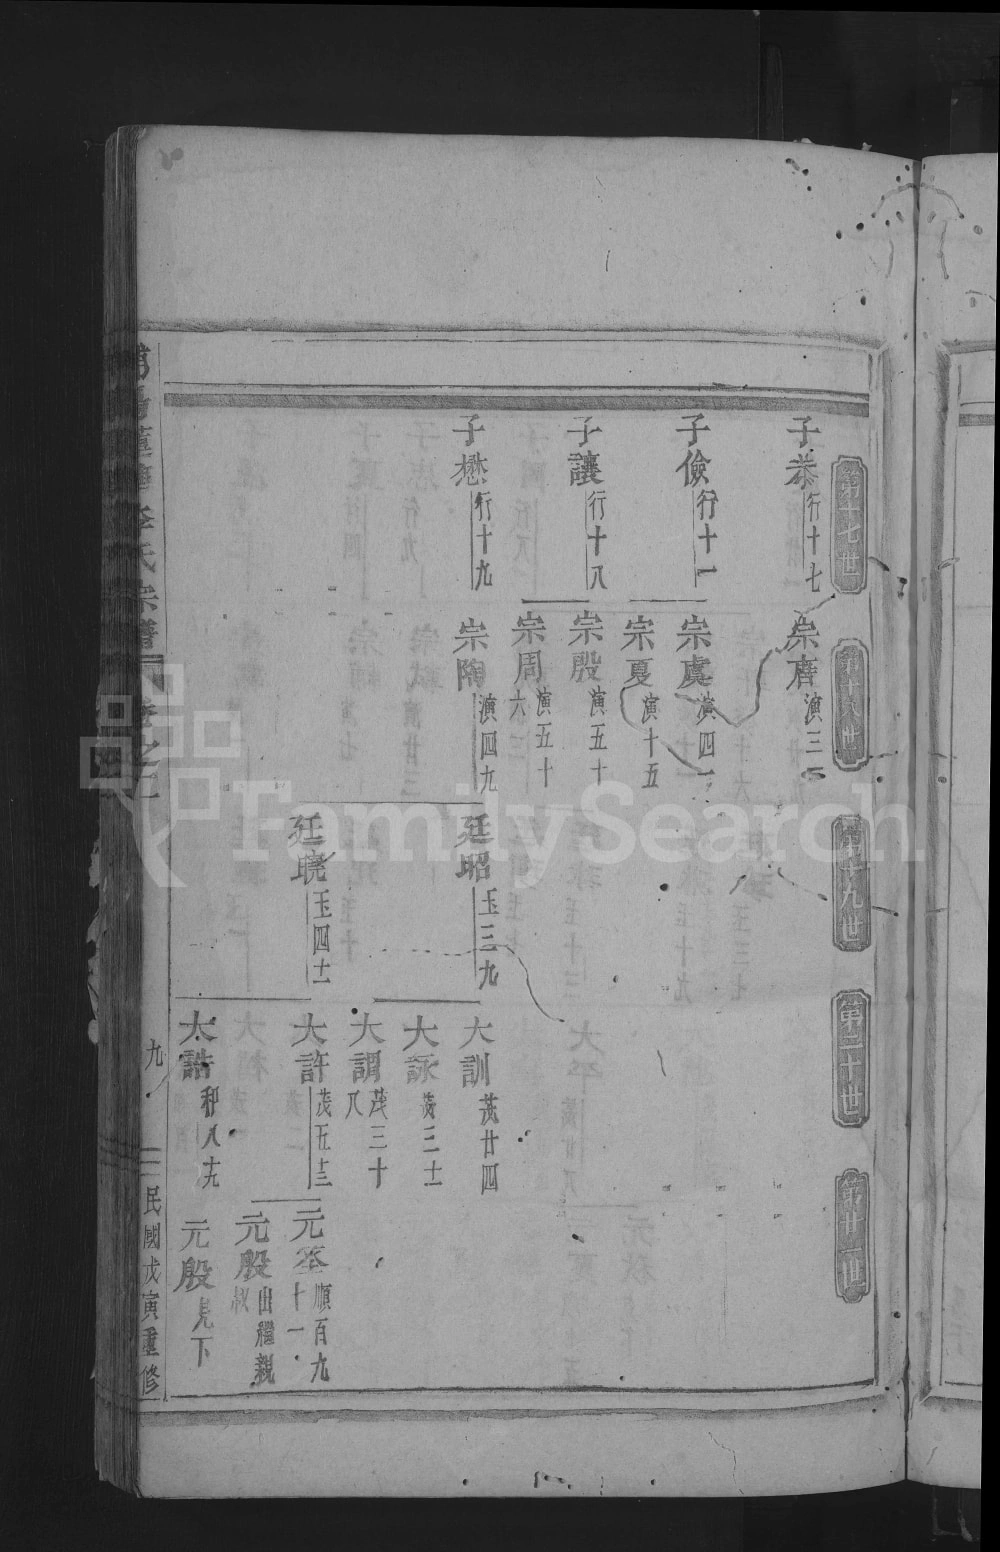 第十七世
第十八世
第十九世
第二十世
第廿一世
子恭 行十七
子儉 行十一
子讓 行十八
子懋 行十九
宗齊 演三二
宗虞 演四一
宗夏 演十五
宗殷 演五十
宗周 演五十六
宗陶 演四九
廷昭 玉三九
廷曉 玉四十
大訓 茂廿四
大詠 茂三十
大調 茂三十八
大許 茂五十三
大誥 和八十九
元丞 順百九十一
元殷 出繼親叔
元殷 見下
李氏宗譜
卷之
九
民國戊寅重修
FamilySearch